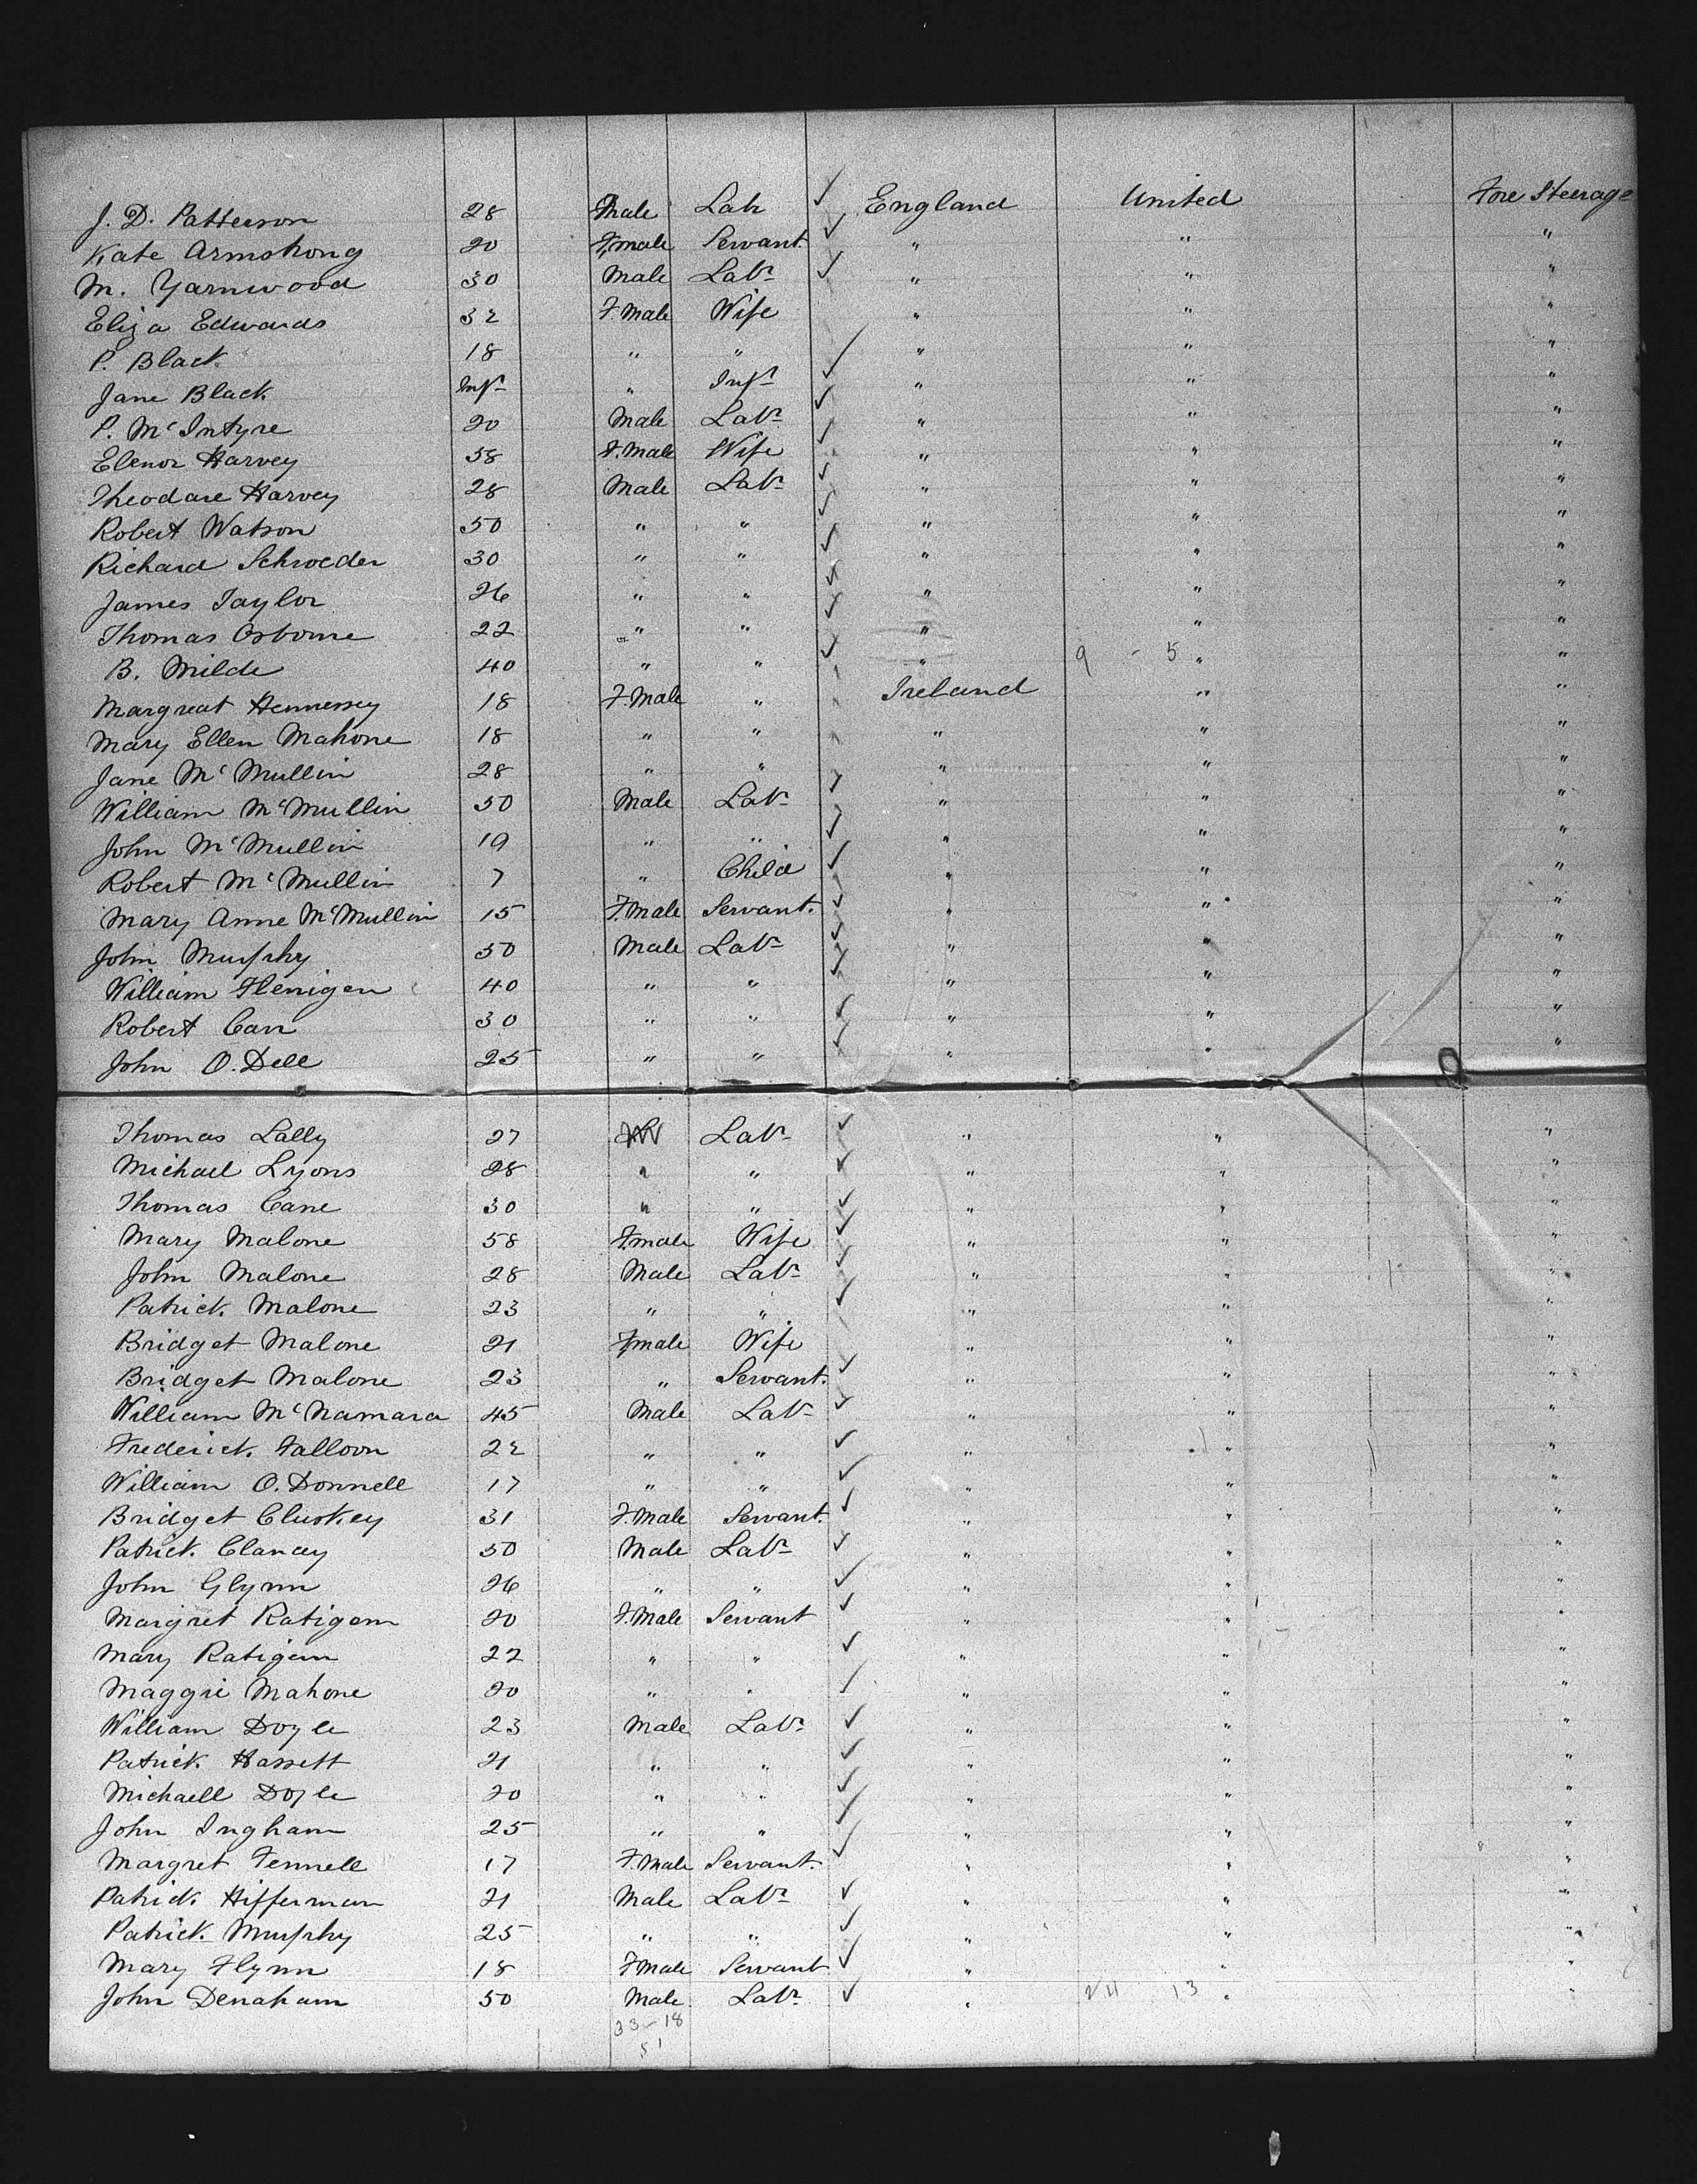 J. D. Patterson 28 Male Labr ✓ England United Fore Steerage
Kate Armstrong 20 F.male Servant. ✓ " " "
M. Yarnwood 30 Male Labr ✓ " " "
Eliza Edwards 32 F.Male Wife " " "
P. Black 18 " " ✓ " " "
Jane Black Inft " Inft ✓ " " "
P. McIntyre 20 Male Labr ✓ " " "
Elenor Harvey 58 F.Male Wife ✓ " " "
Theodare Harvey 28 Male Labr ✓ " " "
Robert Watson 50 " " ✓ " " "
Richard Schroeder 30 " " ✓ " " "
James Taylor 26 " " ✓ " " "
Thomas Osborne 22 " " ✓ " " "
B. Milde 40 " " ✓ " 9 - 5 " "
Margreat Hennessy 18 F.Male " Ireland " "
Mary Ellen Mahone 18 " " " " "
Jane McMullin 28 " " ✓ " " "
William McMullin 50 Male Labr ✓ " " "
John McMullin 19 " " ✓ " " "
Robert McMullin 7 " Child ✓ " " "
Mary Anne McMullin 15 F.Male Servant. ✓ " " "
John Murphy 50 Male Labr ✓ " " "
William Flenigen 40 " " ✓ " " "
Robert Carr 30 " " ✓ " " "
John O.Dell 25 " " ✓ " " "
Thomas Lally 27 Labr ✓ " " "
Michael Lyons 28 " " ✓ " " "
Thomas Cane 30 " " ✓ " " "
Mary Malone 58 F.male Wife ✓ " " "
John Malone 28 Male Labr ✓ " " "
Patrick Malone 23 " " ✓ " " "
Bridget Malone 21 F.male Wife " " "
Bridget Malone 23 " Servant. ✓ " " "
William McNamara 45 Male Labr ✓ " " "
Frederick Falloon 22 " " ✓ " " "
William O.Donnell 17 " " ✓ " " "
Bridget Cluskey 31 F.Male Servant. ✓ " " "
Patrick Clancey 50 Male Labr ✓ " " "
John Glynn 26 " " ✓ " " "
Margret Ratigam 20 F.Male Servant ✓ " " "
Mary Ratigam 22 " " ✓ " " "
Maggie Mahone 20 " " ✓ " " "
William Doyle 23 Male Labr ✓ " " "
Patrick Hassett 21 " " ✓ " " "
Michaell Doyle 20 " " ✓ " " "
John Ingham 25 " " ✓ " " "
Margret Fennell 17 F.Male Servant. ✓ " " "
Patrick Hifferman 21 Male Labr ✓ " " "
Patrick Murphy 25 " " ✓ " " "
Mary Flynn 18 F.Male Servant ✓ " " "
John Denaham 50 Male Labr ✓ " 24 13 " "
33-18
51